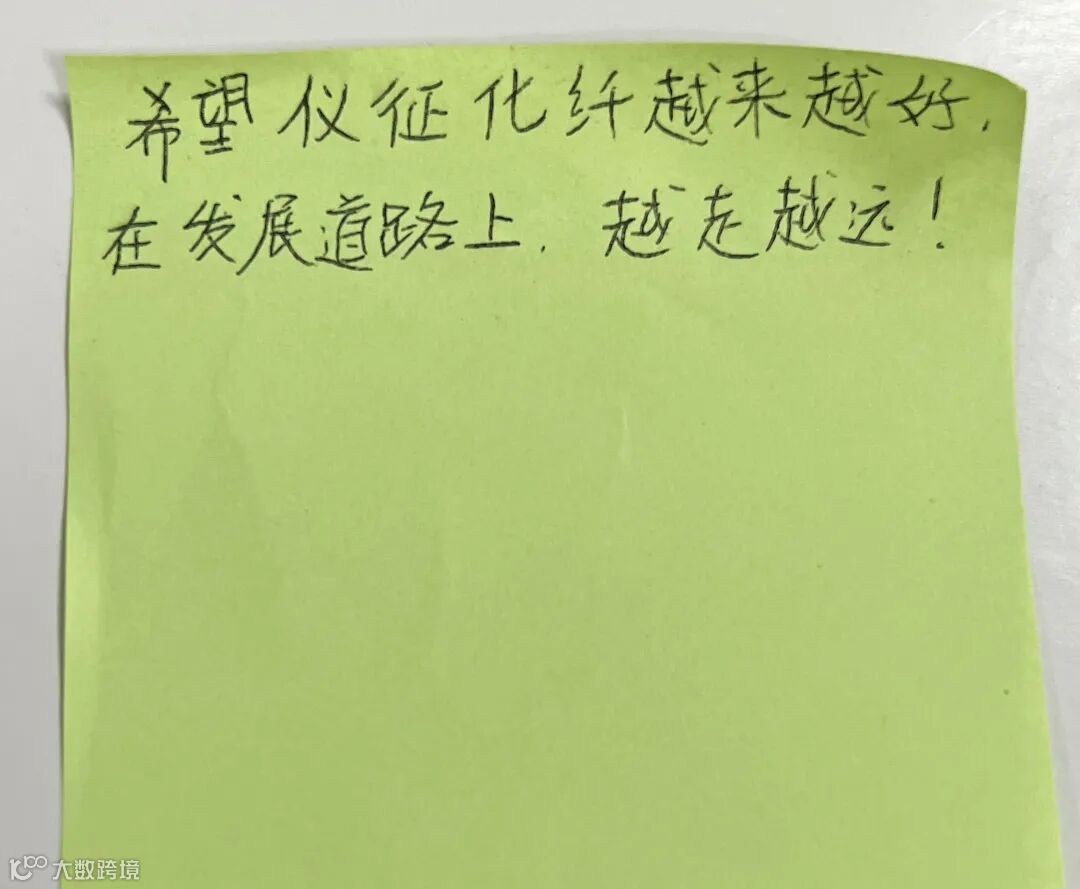 希望仪征化纤越来越好.
在发展道路上.越走越远!
大数跨境